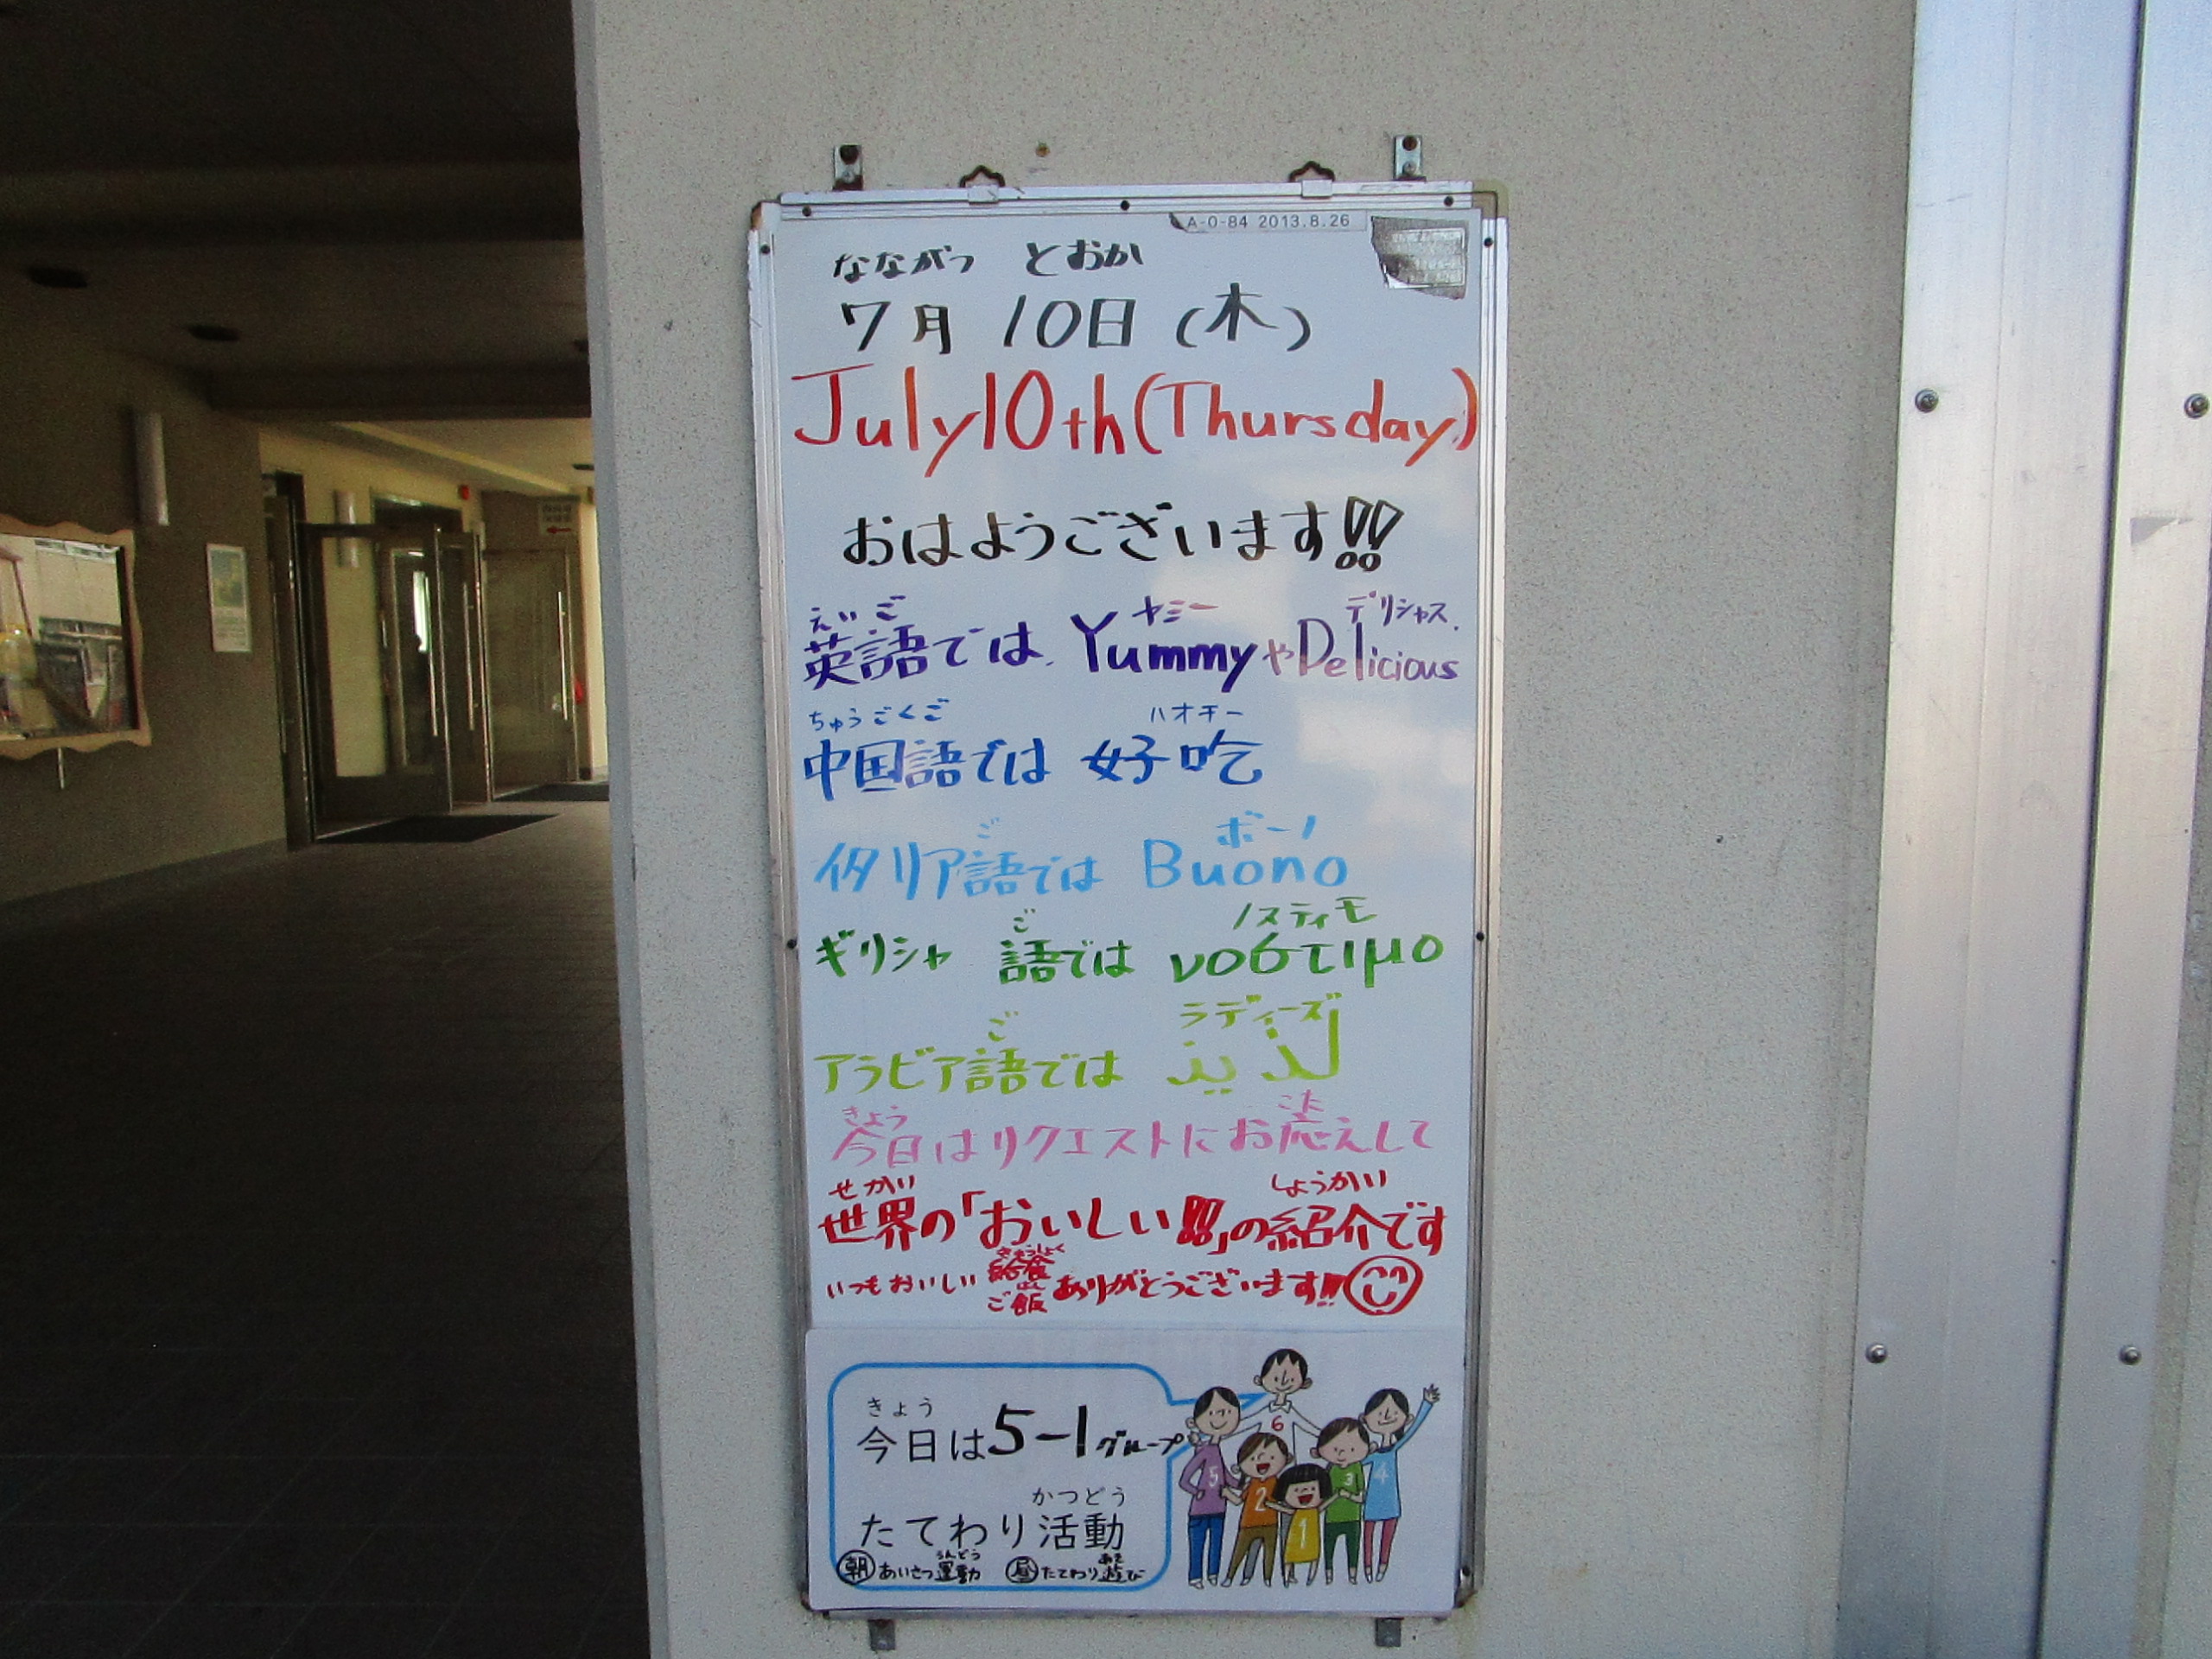 A-0-84 2013.8.26
なながつ とおか
7月 10日 (木)
July10th(Thursday)
おはようございます!!
えいご ヤミー デリシャス
英語では Yummy や Delicious
ちゅうごくご ハオチー
中国語では 好吃
ご ボーノ
イタリア語では Buono
ご ノスティモ
ギリシャ 語では νοστιμο
ご ラディーズ
アラビア語では لذيذ
きょう こた
今日はリクエストにお応えして
せかい しょうかい
世界の「おいしい!!」の紹介です
きゅうしょく
いつもおいしい 給食 ありがとうございます!!
ご飯
きょう
今日は5-1グループ
かつどう
たてわり活動
うんどう あそ
朝 あいさつ運動 昼 たてわり遊び
6
5 2 1 3 4